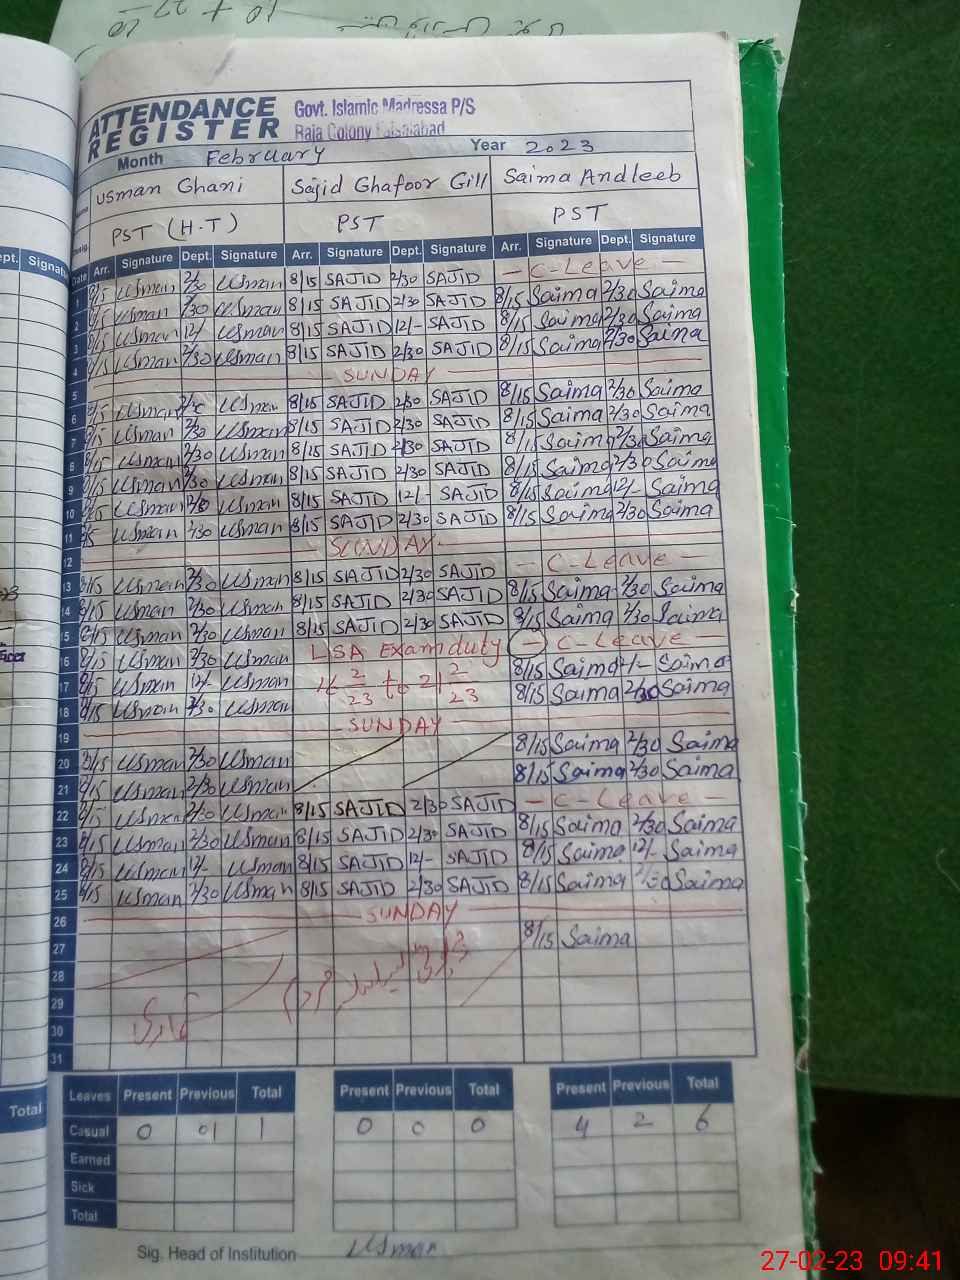 ATTENDANCE REGISTER
Govt. Islamic Madressa P/S
Raja Colony Faisalabad
Month February Year 2023
Usman Ghani Sajid Ghafoor Gill Saima Andleeb
PST (H.T) PST PST
Date Arr. Signature Dept. Signature Arr. Signature Dept. Signature Arr. Signature Dept. Signature
1 8/15 Usman 2/30 Usman 8/15 SAJID 2/30 SAJID — C-Leave —
2 8/15 Usman 2/30 Usman 8/15 SAJID 2/30 SAJID 8/15 Saima 2/30 Saima
3 8/15 Usman 12/- Usman 8/15 SAJID 12/- SAJID 8/15 Saima 2/30 Saima
4 8/15 Usman 2/30 Usman 8/15 SAJID 2/30 SAJID 8/15 Saima 2/30 Saima
5 SUNDAY
6 8/15 Usman 2/30 Usman 8/15 SAJID 2/30 SAJID 8/15 Saima 2/30 Saima
7 8/15 Usman 2/30 Usman 8/15 SAJID 2/30 SAJID 8/15 Saima 2/30 Saima
8 8/15 Usman 2/30 Usman 8/15 SAJID 2/30 SAJID 8/15 Saima 2/30 Saima
9 8/15 Usman 2/30 Usman 8/15 SAJID 2/30 SAJID 8/15 Saima 2/30 Saima
10 8/15 Usman Usman 8/15 SAJID 12/- SAJID 8/15 Saima 12/- Saima
11 8/15 Usman 2/30 Usman 8/15 SAJID 2/30 SAJID 8/15 Saima 2/30 Saima
12 SUNDAY
13 8/15 Usman 2/30 Usman 8/15 SAJID 2/30 SAJID — C-Leave —
14 8/15 Usman 2/30 Usman 8/15 SAJID 2/30 SAJID 8/15 Saima 2/30 Saima
15 8/15 Usman 2/30 Usman 8/15 SAJID 2/30 SAJID 8/15 Saima 2/30 Saima
16 8/15 Usman 2/30 Usman LSA Exam duty — C-Leave —
17 8/15 Usman 12/- Usman 16 2/23 to 21 2/23 8/15 Saima Saima
18 8/15 Usman 2/30 Usman 8/15 Saima 2/30 Saima
19 SUNDAY
20 8/15 Usman 2/30 Usman 8/15 Saima 2/30 Saima
21 8/15 Usman 2/30 Usman 8/15 Saima 2/30 Saima
22 8/15 Usman 2/30 Usman 8/15 SAJID 2/30 SAJID — C-Leave —
23 8/15 Usman 2/30 Usman 8/15 SAJID 2/30 SAJID 8/15 Saima 2/30 Saima
24 8/15 Usman 12/- Usman 8/15 SAJID 12/- SAJID 8/15 Saima 12/- Saima
25 8/15 Usman 2/30 Usman 8/15 SAJID 2/30 SAJID 8/15 Saima 2/30 Saima
26 SUNDAY
27 8/15 Saima
28
29
30
31
Leaves Present Previous Total Present Previous Total Present Previous Total
Casual 0 01 1 0 0 0 4 2 6
Earned
Sick
Total
Sig. Head of Institution Usman
Dept. Signatu
Total
27-02-23 09:41